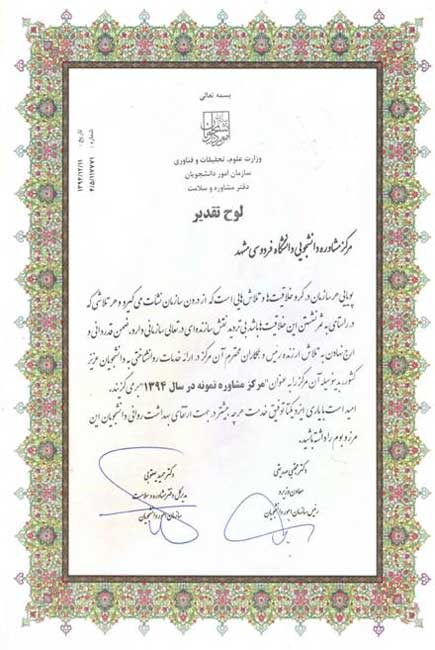 بسمه تعالی
شماره: ۴/۵/۱۱۷۷۷۱
تاریخ: ۱۳۹۴/۱۲/۱۱
وزارت علوم، تحقیقات و فناوری
سازمان امور دانشجویان
دفتر مشاوره و سلامت
لوح تقدیر
مرکز مشاوره دانشجویی دانشگاه فردوسی مشهد
پویایی هر سازمان در گرو خلاقیت‌ها و تلاش‌هایی است که از درون سازمان نشات می گیرد و هر تلاشی که
در راستای به ثمر نشستن این خلاقیت‌ها باشد بی تردید نقش سازنده‌ای در تعالی سازمانی دارد، ضمن قدردانی و
ارج نهادن به تلاش ارزنده رییس و همکاران محترم آن مرکز در ارائه خدمات روانشناختی به دانشجویان عزیز
کشور، بدینوسیله آن مرکز را به عنوان "مرکز مشاوره نمونه در سال ۱۳۹۴" معرفی می‌کند.
امید است با یاری ایزد یکتا توفیق خدمت هر چه بیشتر در جهت ارتقای بهداشت روانی دانشجویان این
مرز و بوم را داشته باشید.
دکتر مجتبی صدیقی
معاون وزیر و
رئیس سازمان امور دانشجویان
دکتر حمید یعقوبی
مدیرکل دفتر مشاوره و سلامت
سازمان امور دانشجویان